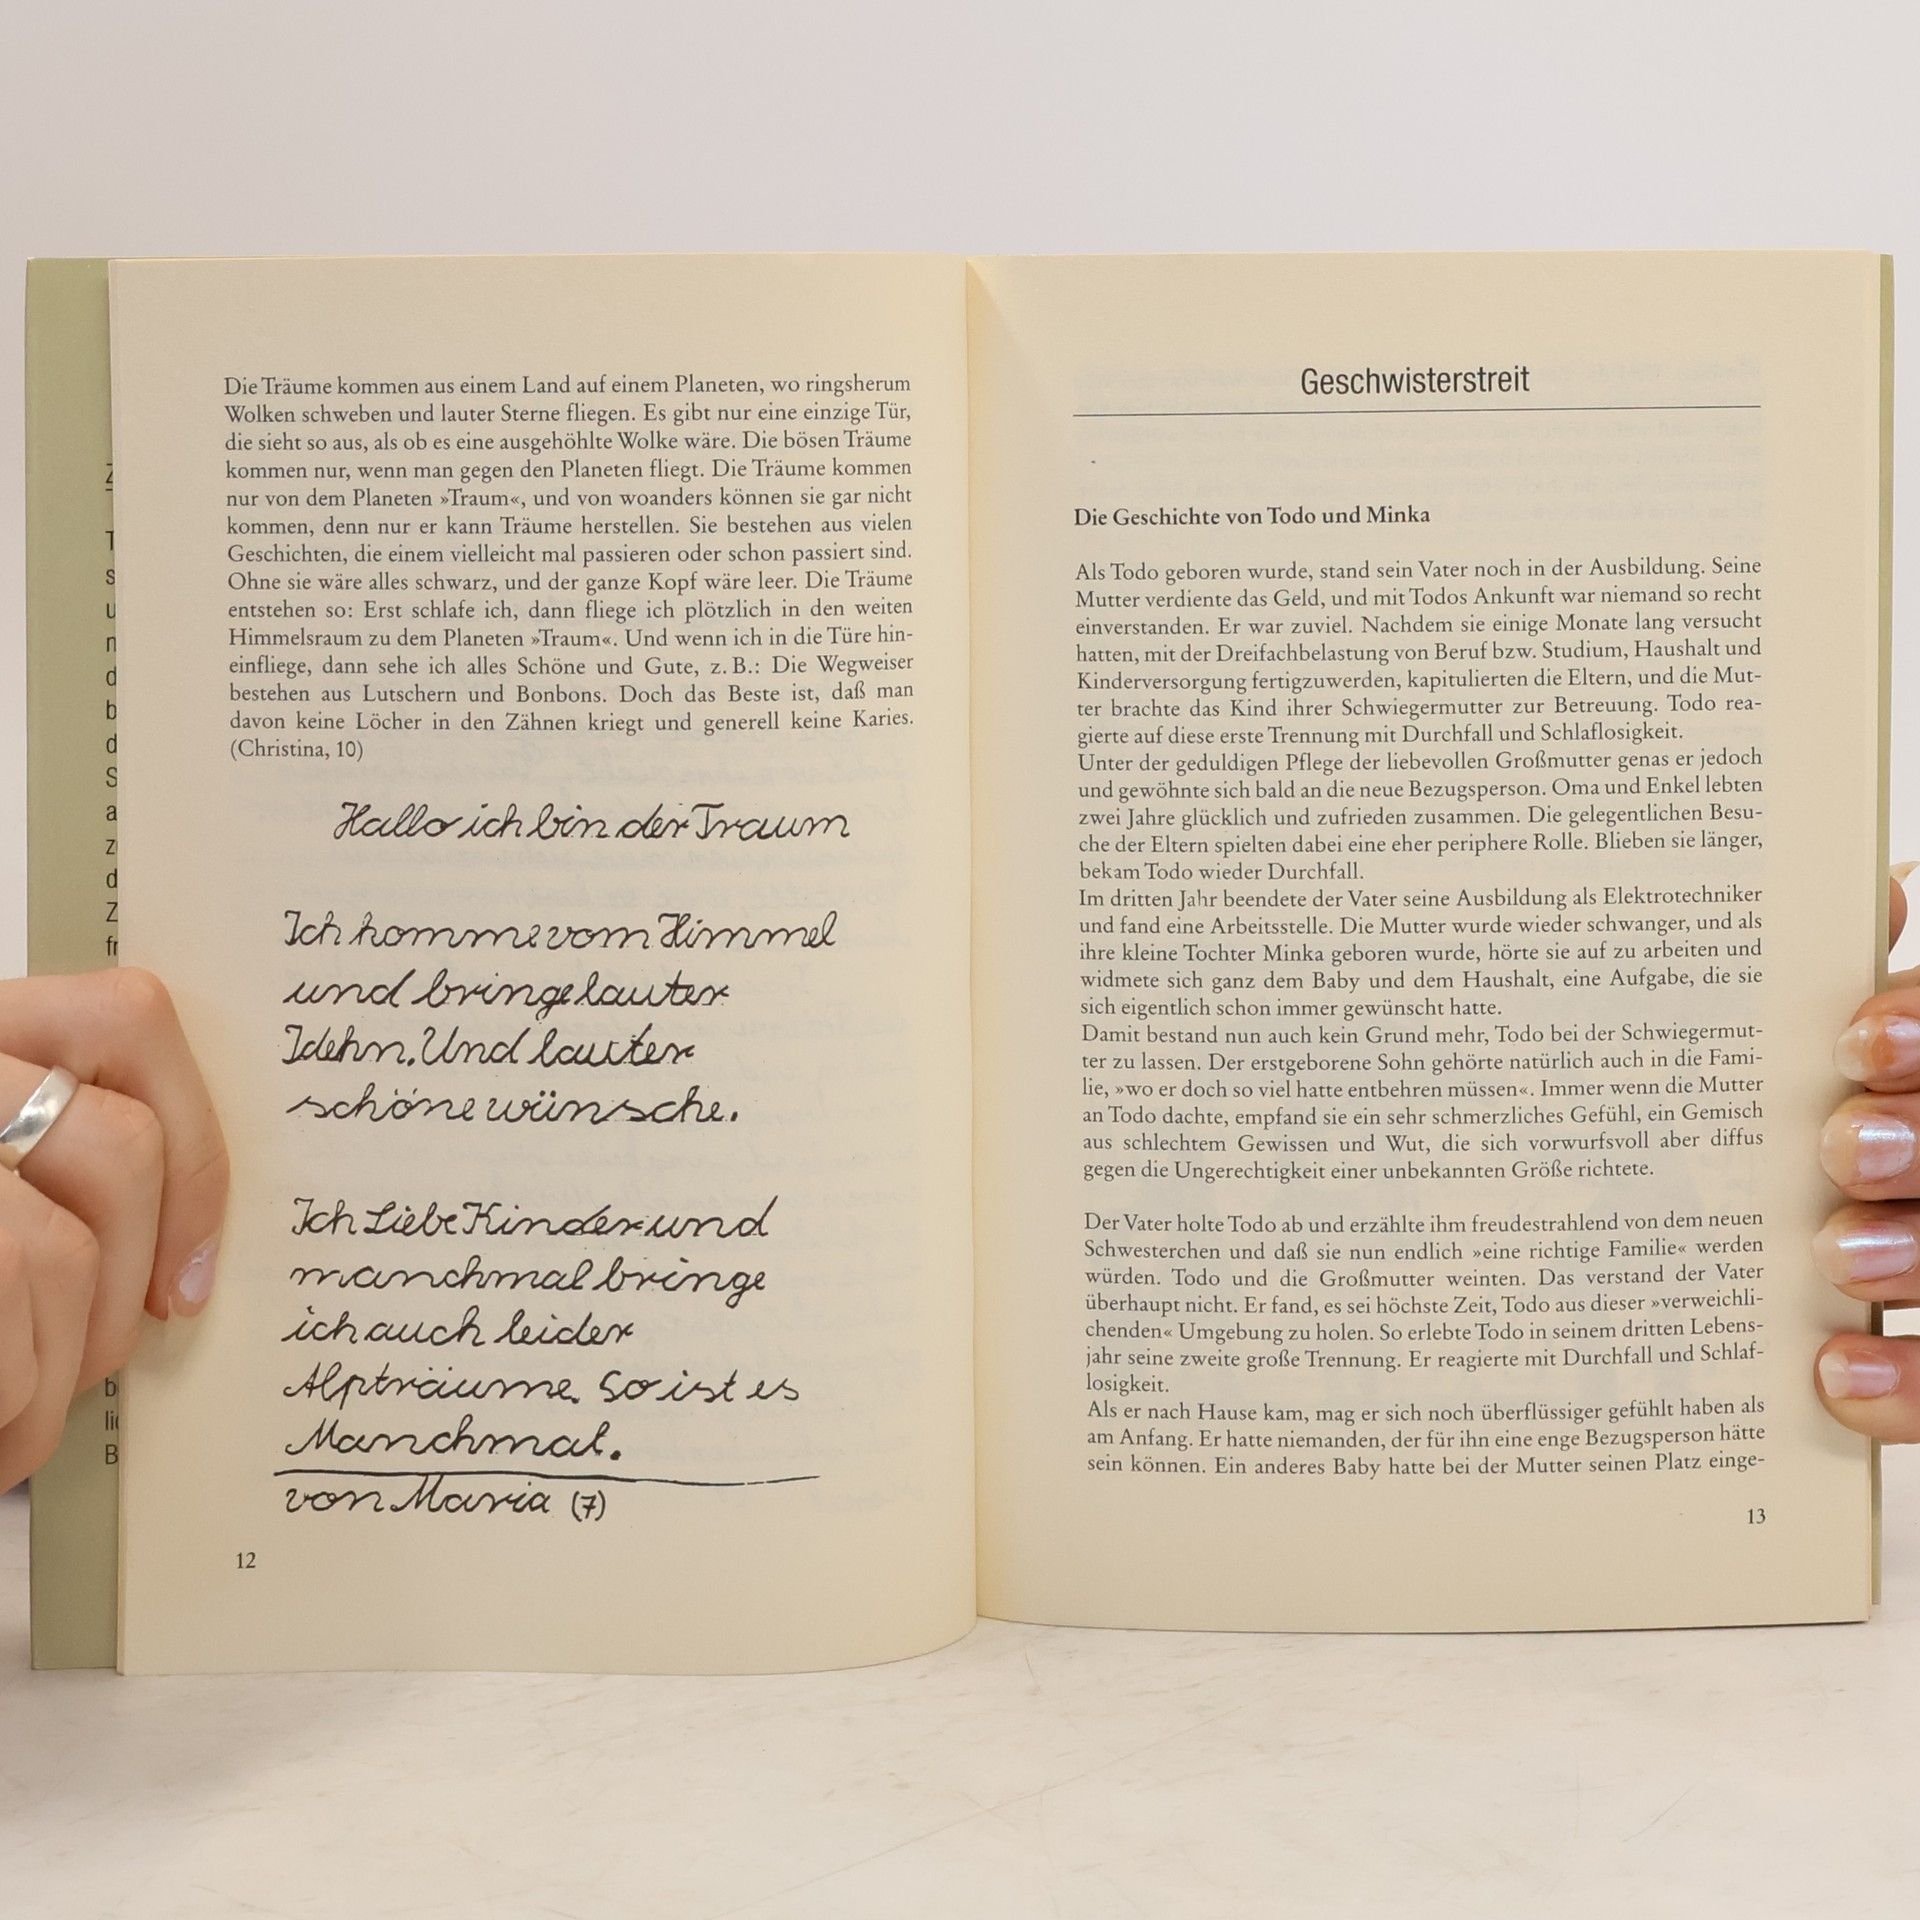 Die Träume kommen aus einem Land auf einem Planeten, wo ringsherum
Wolken schweben und lauter Sterne fliegen. Es gibt nur eine einzige Tür,
die sieht so aus, als ob es eine ausgehöhlte Wolke wäre. Die bösen Träume
kommen nur, wenn man gegen den Planeten fliegt. Die Träume kommen
nur von dem Planeten »Traum«, und von woanders können sie gar nicht
kommen, denn nur er kann Träume herstellen. Sie bestehen aus vielen
Geschichten, die einem vielleicht mal passieren oder schon passiert sind.
Ohne sie wäre alles schwarz, und der ganze Kopf wäre leer. Die Träume
entstehen so: Erst schlafe ich, dann fliege ich plötzlich in den weiten
Himmelsraum zu dem Planeten »Traum«. Und wenn ich in die Türe hin-
einfliege, dann sehe ich alles Schöne und Gute, z. B.: Die Wegweiser
bestehen aus Lutschern und Bonbons. Doch das Beste ist, daß man
davon keine Löcher in den Zähnen kriegt und generell keine Karies.
(Christina, 10)
Hallo ich bin der Traum
Ich komme vom Himmel
und bringe lauter
Idehn. Und lauter
schöne wünsche.
Ich Liebe Kinder und
manchmal bringe
ich auch leider
Alpträume. So ist es
Manchmal.
von Maria (7)
12
Geschwisterstreit
Die Geschichte von Todo und Minka
Als Todo geboren wurde, stand sein Vater noch in der Ausbildung. Seine
Mutter verdiente das Geld, und mit Todos Ankunft war niemand so recht
einverstanden. Er war zuviel. Nachdem sie einige Monate lang versucht
hatten, mit der Dreifachbelastung von Beruf bzw. Studium, Haushalt und
Kinderversorgung fertigzuwerden, kapitulierten die Eltern, und die Mut-
ter brachte das Kind ihrer Schwiegermutter zur Betreuung. Todo rea-
gierte auf diese erste Trennung mit Durchfall und Schlaflosigkeit.
Unter der geduldigen Pflege der liebevollen Großmutter genas er jedoch
und gewöhnte sich bald an die neue Bezugsperson. Oma und Enkel lebten
zwei Jahre glücklich und zufrieden zusammen. Die gelegentlichen Besu-
che der Eltern spielten dabei eine eher periphere Rolle. Blieben sie länger,
bekam Todo wieder Durchfall.
Im dritten Jahr beendete der Vater seine Ausbildung als Elektrotechniker
und fand eine Arbeitsstelle. Die Mutter wurde wieder schwanger, und als
ihre kleine Tochter Minka geboren wurde, hörte sie auf zu arbeiten und
widmete sich ganz dem Baby und dem Haushalt, eine Aufgabe, die sie
sich eigentlich schon immer gewünscht hatte.
Damit bestand nun auch kein Grund mehr, Todo bei der Schwiegermut-
ter zu lassen. Der erstgeborene Sohn gehörte natürlich auch in die Fami-
lie, »wo er doch so viel hatte entbehren müssen«. Immer wenn die Mutter
an Todo dachte, empfand sie ein sehr schmerzliches Gefühl, ein Gemisch
aus schlechtem Gewissen und Wut, die sich vorwurfsvoll aber diffus
gegen die Ungerechtigkeit einer unbekannten Größe richtete.
Der Vater holte Todo ab und erzählte ihm freudestrahlend von dem neuen
Schwesterchen und daß sie nun endlich »eine richtige Familie« werden
würden. Todo und die Großmutter weinten. Das verstand der Vater
überhaupt nicht. Er fand, es sei höchste Zeit, Todo aus dieser »verweichli-
chenden« Umgebung zu holen. So erlebte Todo in seinem dritten Lebens-
jahr seine zweite große Trennung. Er reagierte mit Durchfall und Schlaf-
losigkeit.
Als er nach Hause kam, mag er sich noch überflüssiger gefühlt haben als
am Anfang. Er hatte niemanden, der für ihn eine enge Bezugsperson hätte
sein können. Ein anderes Baby hatte bei der Mutter seinen Platz einge-
13